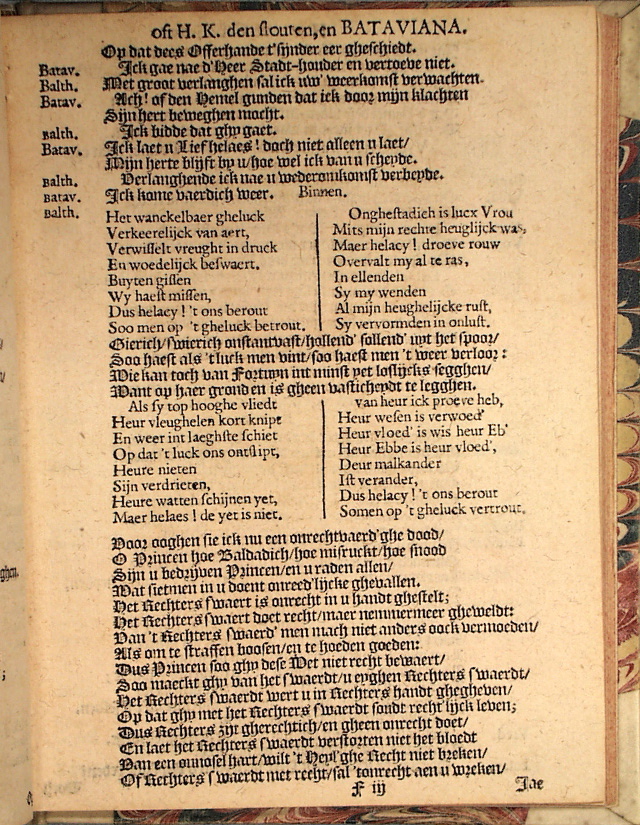 oft H. K. den stouten, en BATAVIANA.
Op dat dees Offerhande t'sijnder eer gheschiedt.
Batav. Ick gae nae d'Heer Stadt-houder en vertoeve niet.
Balth. Met groot verlanghen sal ick uw' weerkomst verwachten.
Batav. Ach! of den Hemel gunden dat ick door mijn klachten
Sijn hert beweghen mocht.
Balth. Ick bidde dat ghy gaet.
Batav. Ick laet u Lief helaes! doch niet alleen u laet/
Mijn herte blijft by u/hoe wel ick van u scheyde.
Balth. Verlanghende ick nae u wederomkomst verbeyde.
Batav. Ick kome vaerdich weer. Binnen.
Balth.
Het wanckelbaer gheluck
Verkeerelijck van aert,
Verwisselt vreught in druck
En woedelijck beswaert.
Buyten gissen
Wy haest missen,
Dus helacy! 't ons berout
Soo men op 't gheluck betrout.
Onghestadich is lucx Vrou
Mits mijn rechte heuglijck was,
Maer helacy! droeve rouw
Overvalt my al te ras,
In ellenden
Sy my wenden
Al mijn heughelijcke rust,
Sy vervormden in onlust.
Gierich/swierich onstantvast/hollend' sollend' uyt het spoor/
Soo haest als 't luck men vint/soo haest men 't weer verloor:
Wie kan toch van Fortuyn int minst yet loflijcks segghen/
Want op haer gronden is gheen vasticheydt te legghen.
Als sy top hooghe vliedt
Heur vleughelen kort knipt
En weer int laeghste schiet
Op dat 't luck ons ontslipt,
Heure nieten
Sijn verdrieten,
Heure watten schijnen yet,
Maer helaes! de yet is niet.
van heur ick proeve heb,
Heur wesen is verwoed'
Heur vloed' is wis heur Eb'
Heur Ebbe is heur vloed',
Deur malkander
Ist verander,
Dus helacy! 't ons berout
Somen op 't gheluck vertrout.
Voor ooghen sie ick nu een onrechtvaerd'ghe dood/
O Princen hoe Baldadich/hoe misruckt/hoe snood
Sijn u bedrijven Princen/en u raden allen/
Wat sietmen in u doent onreed'lijcke ghevallen.
Het Rechters swaert is onrecht in u handt ghestelt;
Het Rechters swaert doet recht/maer nemmermeer gheweldt:
Van 't Rechters swaerd' men mach niet anders oock vermoeden/
Als om te straffen boosen/en te hoeden goeden:
Dus Princen soo ghy dese Wet niet recht bewaert/
Soo maeckt ghy van het swaerdt/u eyghen Rechters swaerdt/
Het Rechters swaerdt wert u in Rechters handt ghegheven/
Op dat ghy met het Rechters swaerdt soudt recht'lijck leven;
Dus Rechters zijt gherechtich/en gheen onrecht doet/
En laet het Rechters swaerdt verstorten niet het bloedt
Van een onnosel hart/wilt 't Heyl'ghe Recht niet breken/
Of Rechters swaerdt met recht/sal 'tonrecht aen u wreken/
F iij
Jae